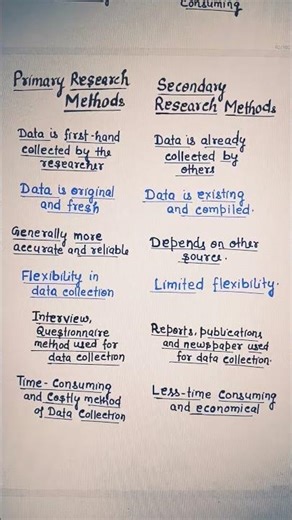 Consuming
Primary Research
Methods
Data is first-hand
collected by the
researcher
Data is original
and fresh
Generally more
accurate and reliable
Flexibility in
data collection
Interview,
Questionnaire
method used for
data collection
Time-Consuming
and Costly method
of Data Collection
Secondary
Research Methods
Data is already
collected by
others
Data is existing
and compiled.
Depends on other
source.
Limited flexibility.
Reports, publications
and newspaper used
for data collection.
Less-time Consuming
and economical